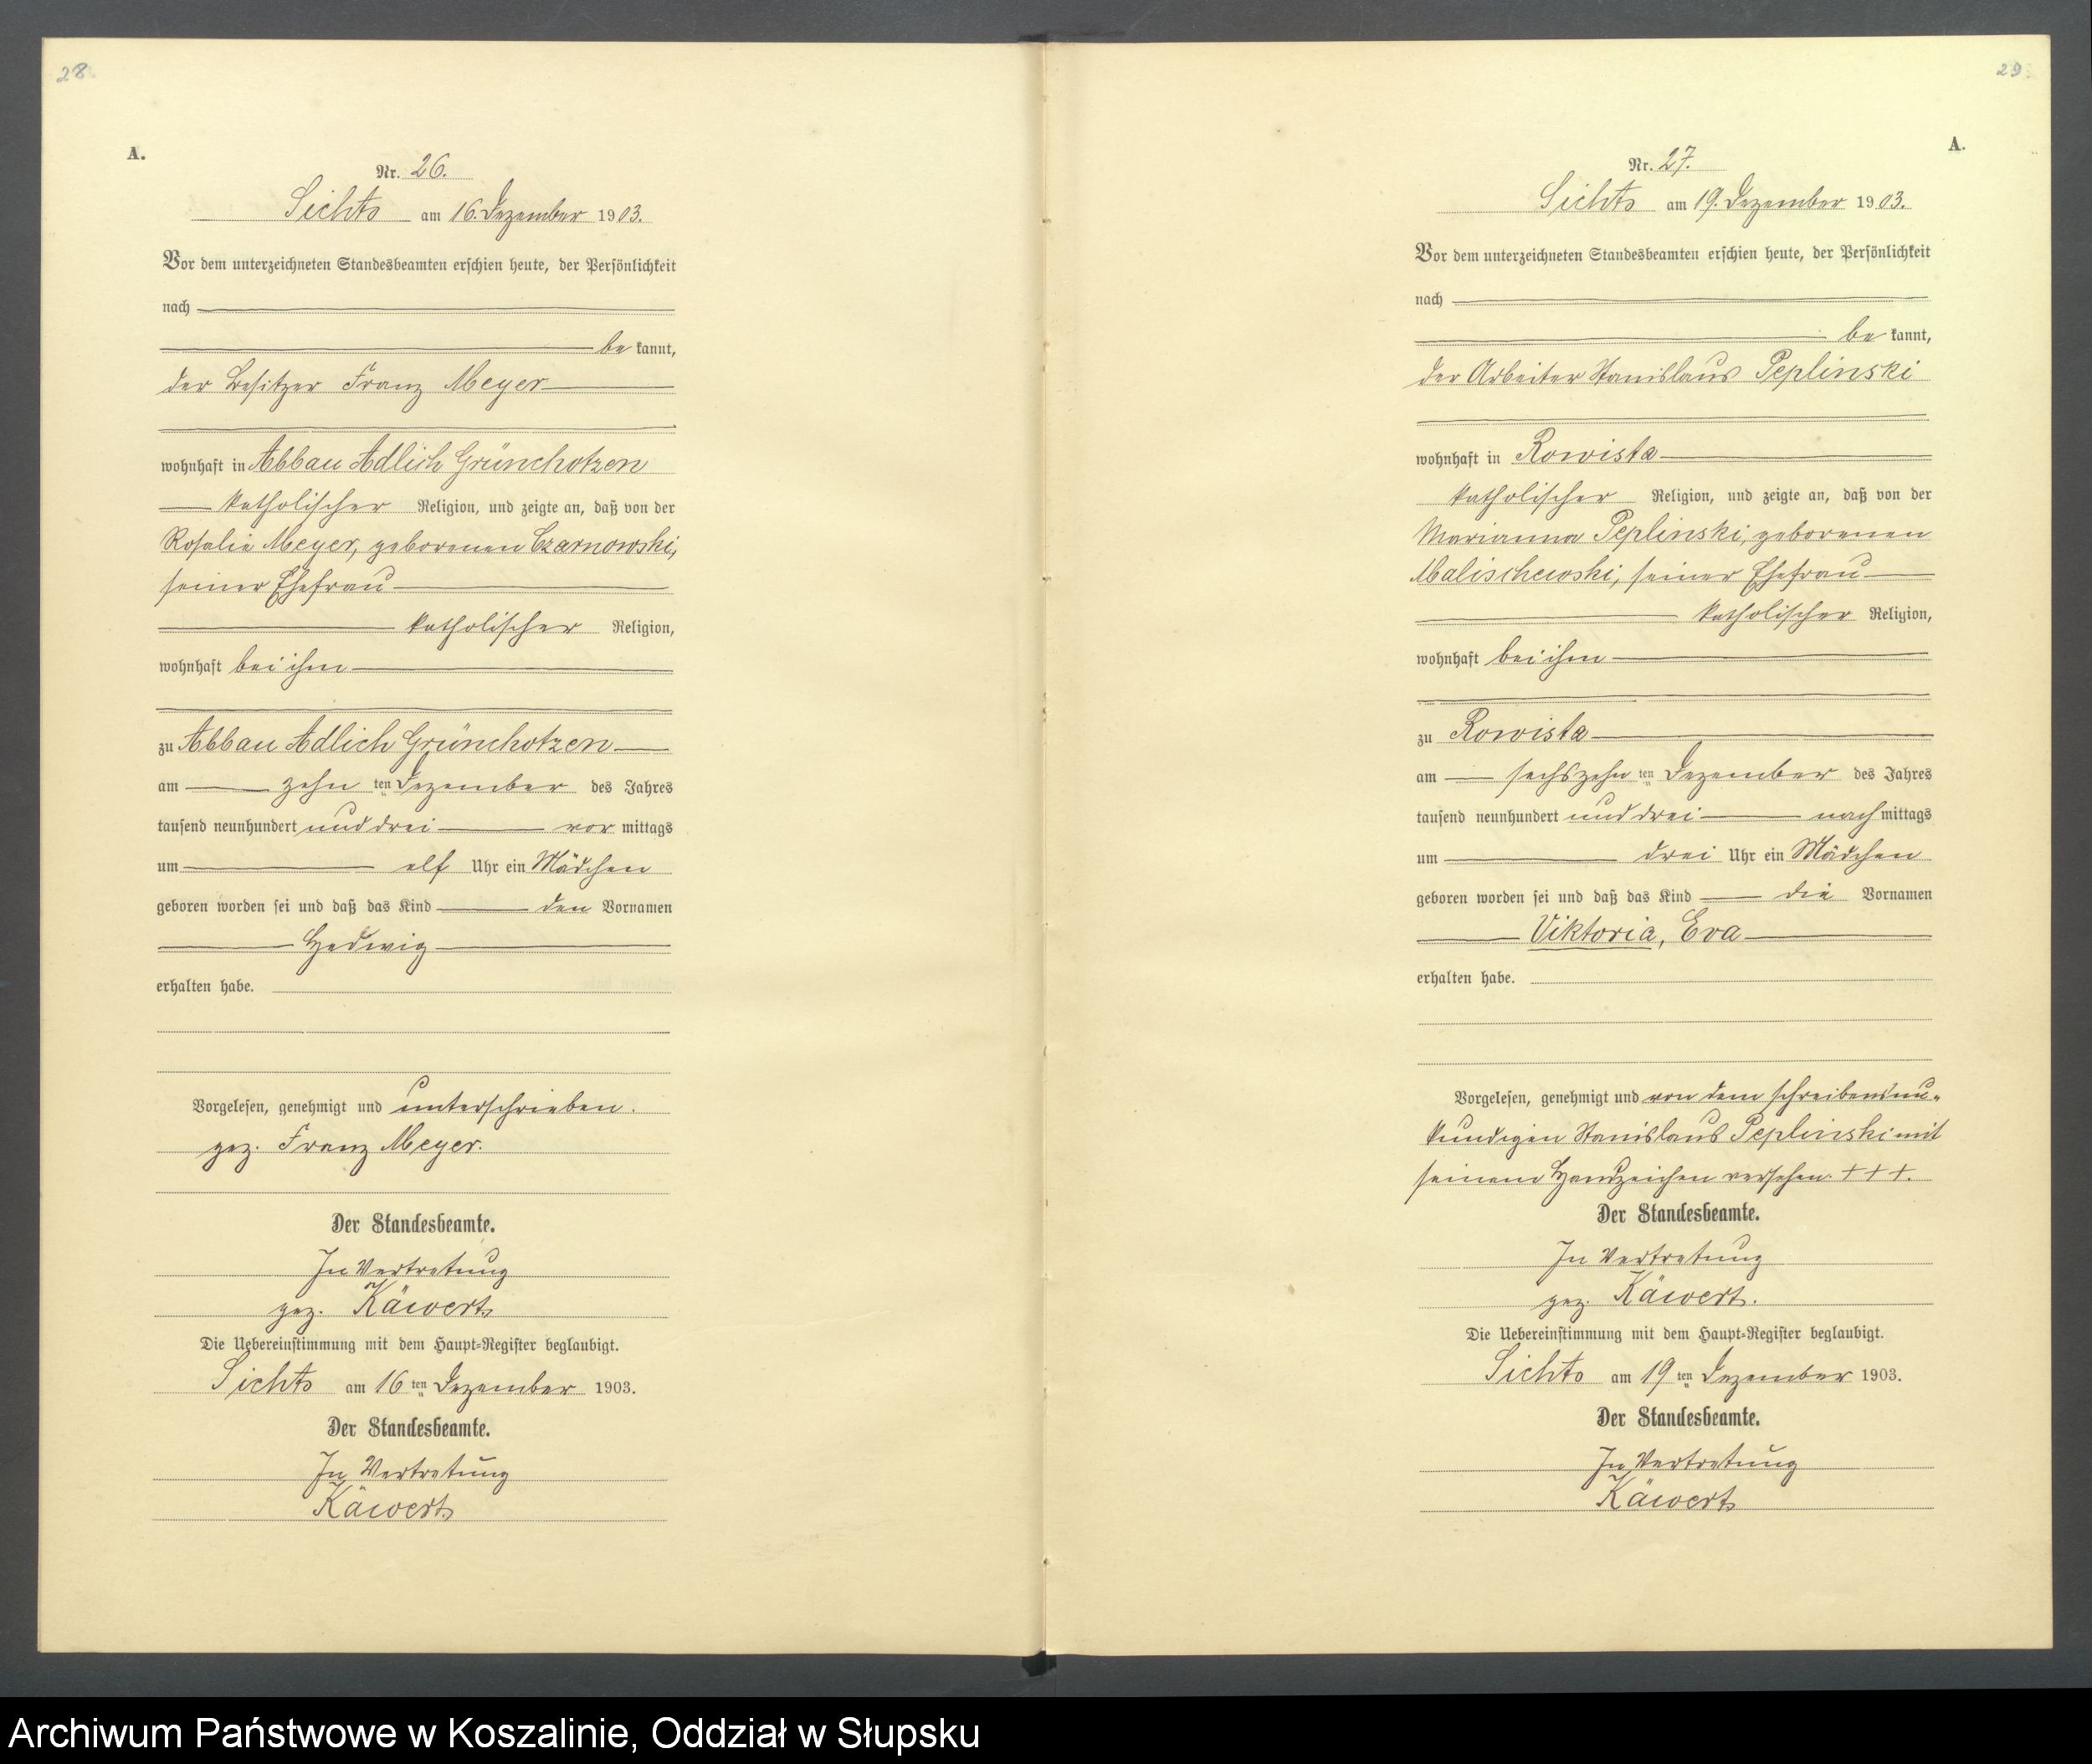 28
A.
Nr. 26.
Sichts am 16. Dezember 1903.
Vor dem unterzeichneten Standesbeamten erschien heute, der Persönlichkeit
nach
be kannt,
der Besitzer Franz Meyer
wohnhaft in Abbau Adlich Grünchotzen
katholischer Religion, und zeigte an, daß von der
Rosalie Meyer, geborenen Czarnowski,
seiner Ehefrau
katholischer Religion,
wohnhaft bei ihm
zu Abbau Adlich Grünchotzen
am zehn ten Dezember des Jahres
tausend neunhundert und drei vor mittags
um elf Uhr ein Mädchen
geboren worden sei und daß das Kind den Vornamen
Hedwig
erhalten habe.
Vorgelesen, genehmigt und unterschrieben.
gez. Franz Meyer.
Der Standesbeamte.
In Vertretung
gez. Käwert
Die Uebereinstimmung mit dem Haupt-Register beglaubigt.
Sichts am 16 ten Dezember 1903.
Der Standesbeamte.
In Vertretung
Käwert
29
A.
Nr. 27.
Sichts am 19. Dezember 1903.
Vor dem unterzeichneten Standesbeamten erschien heute, der Persönlichkeit
nach
be kannt,
der Arbeiter Stanislaus Peplinski
wohnhaft in Rowista
katholischer Religion, und zeigte an, daß von der
Marianna Peplinski, geborenen
Malischewski, seiner Ehefrau
katholischer Religion,
wohnhaft bei ihm
zu Rowista
am sechszehn ten Dezember des Jahres
tausend neunhundert und drei nach mittags
um drei Uhr ein Mädchen
geboren worden sei und daß das Kind die Vornamen
Viktoria, Eva
erhalten habe.
Vorgelesen, genehmigt und von dem schreibensun-
kundigen Stanislaus Peplinski mit
seinem Handzeichen versehen. + + +.
Der Standesbeamte.
In Vertretung
gez. Käwert.
Die Uebereinstimmung mit dem Haupt-Register beglaubigt.
Sichts am 19 ten Dezember 1903.
Der Standesbeamte.
In Vertretung
Käwert
Archiwum Państwowe w Koszalinie, Oddział w Słupsku